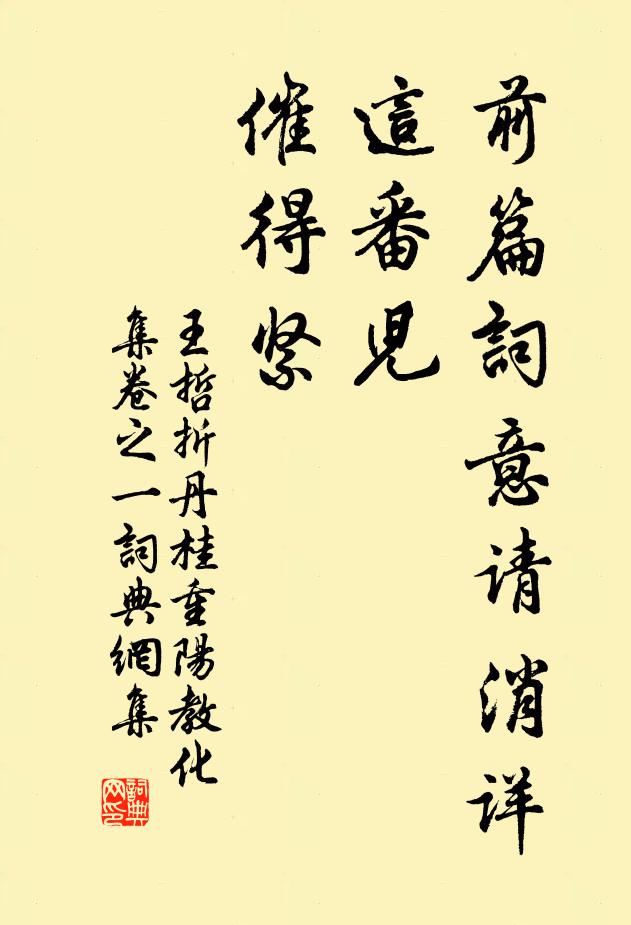 前篇詞意请消详
這番児
催得紧
王哲折丹桂重陽教化
集卷之一詞典網集
詞典网印